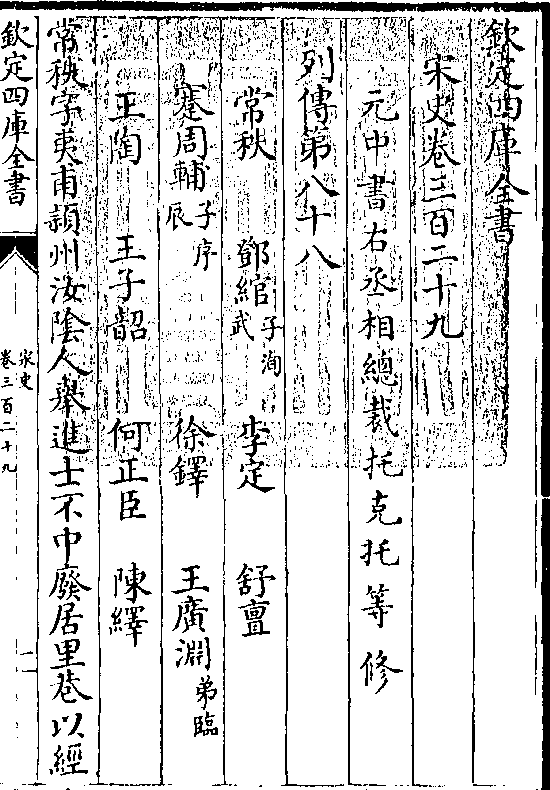 欽定四庫全書
宋史卷三百二十九
元中書右丞相總裁托克托等修
列傳第八十八
常秩 鄧綰子洵武 李定 舒亶
蹇周輔子序辰 徐鐸 王廣淵弟臨
王陶 王子韶 何正臣 陳繹
常秩字夷甫潁州汝隂人舉進士不中廢居里巷以經
欽定四庫全書
宋史
卷三百二十九
一